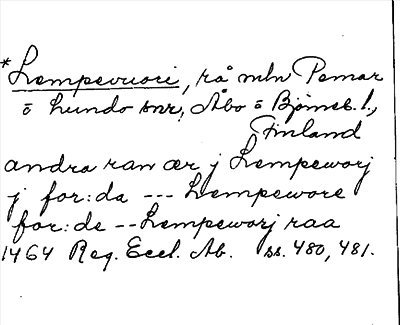 *Lempevuori, rå mln Pemar
o hundo snr, Åbo o Björneb. l.,
Finland
andra ran ær j Lempeworj
j for:da --- Lempewore
for:de -- Lempeworj raa
1464 Reg. Eccl. Ab. ss. 480, 481.